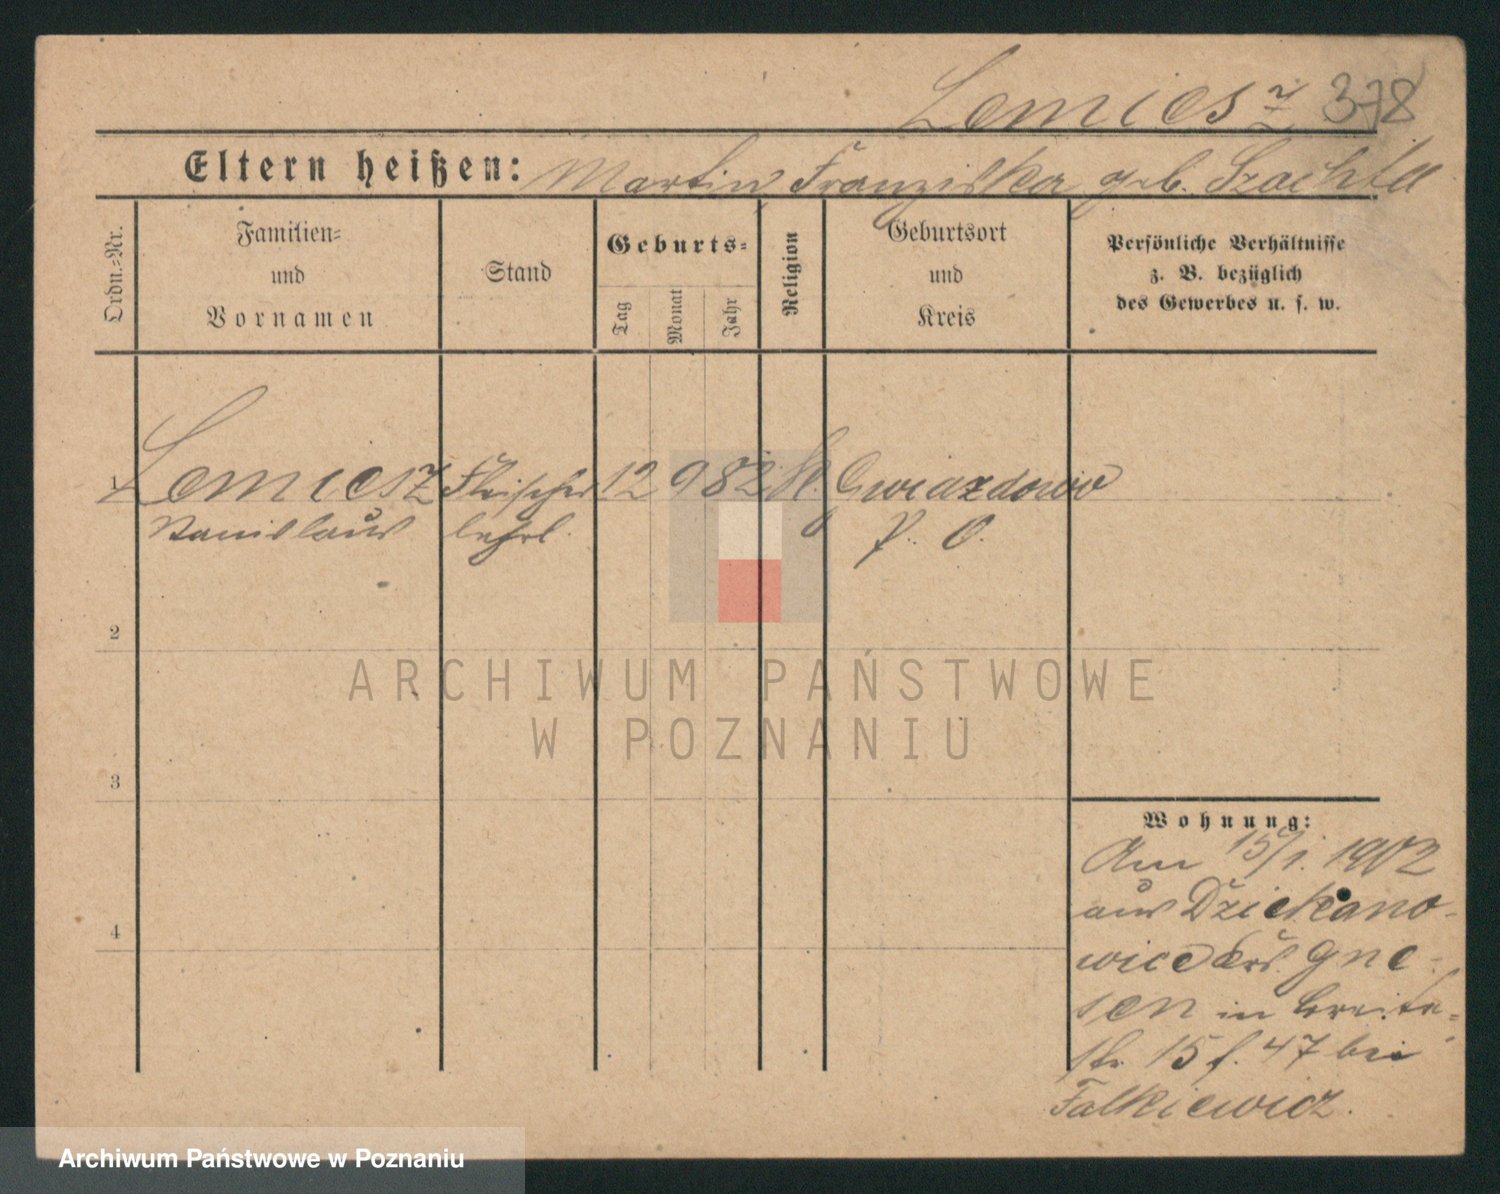 Lemiesz 378
Eltern heißen: Martin Franziska geb. Szachta
Ordn.-Nr.
Familien-
und
Vornamen
Stand
Geburts-
Tag
Monat
Jahr
Religion
Geburtsort
und
Kreis
Persönliche Verhältnisse
z. B. bezüglich
des Gewerbes u. s. w.
1 Lemiesz Fleischer 12 9 82 k. Gwiazdowo
Stanislaus lehrl. P. O.
2
3
4
Wohnung:
Am 15/1. 1902
aus Dziekano-
wice Krs. Gne-
sen in Breite-
str. 15 f. 47 bei
Falkiewicz.
ARCHIWUM PAŃSTWOWE
W POZNANIU
Archiwum Państwowe w Poznaniu